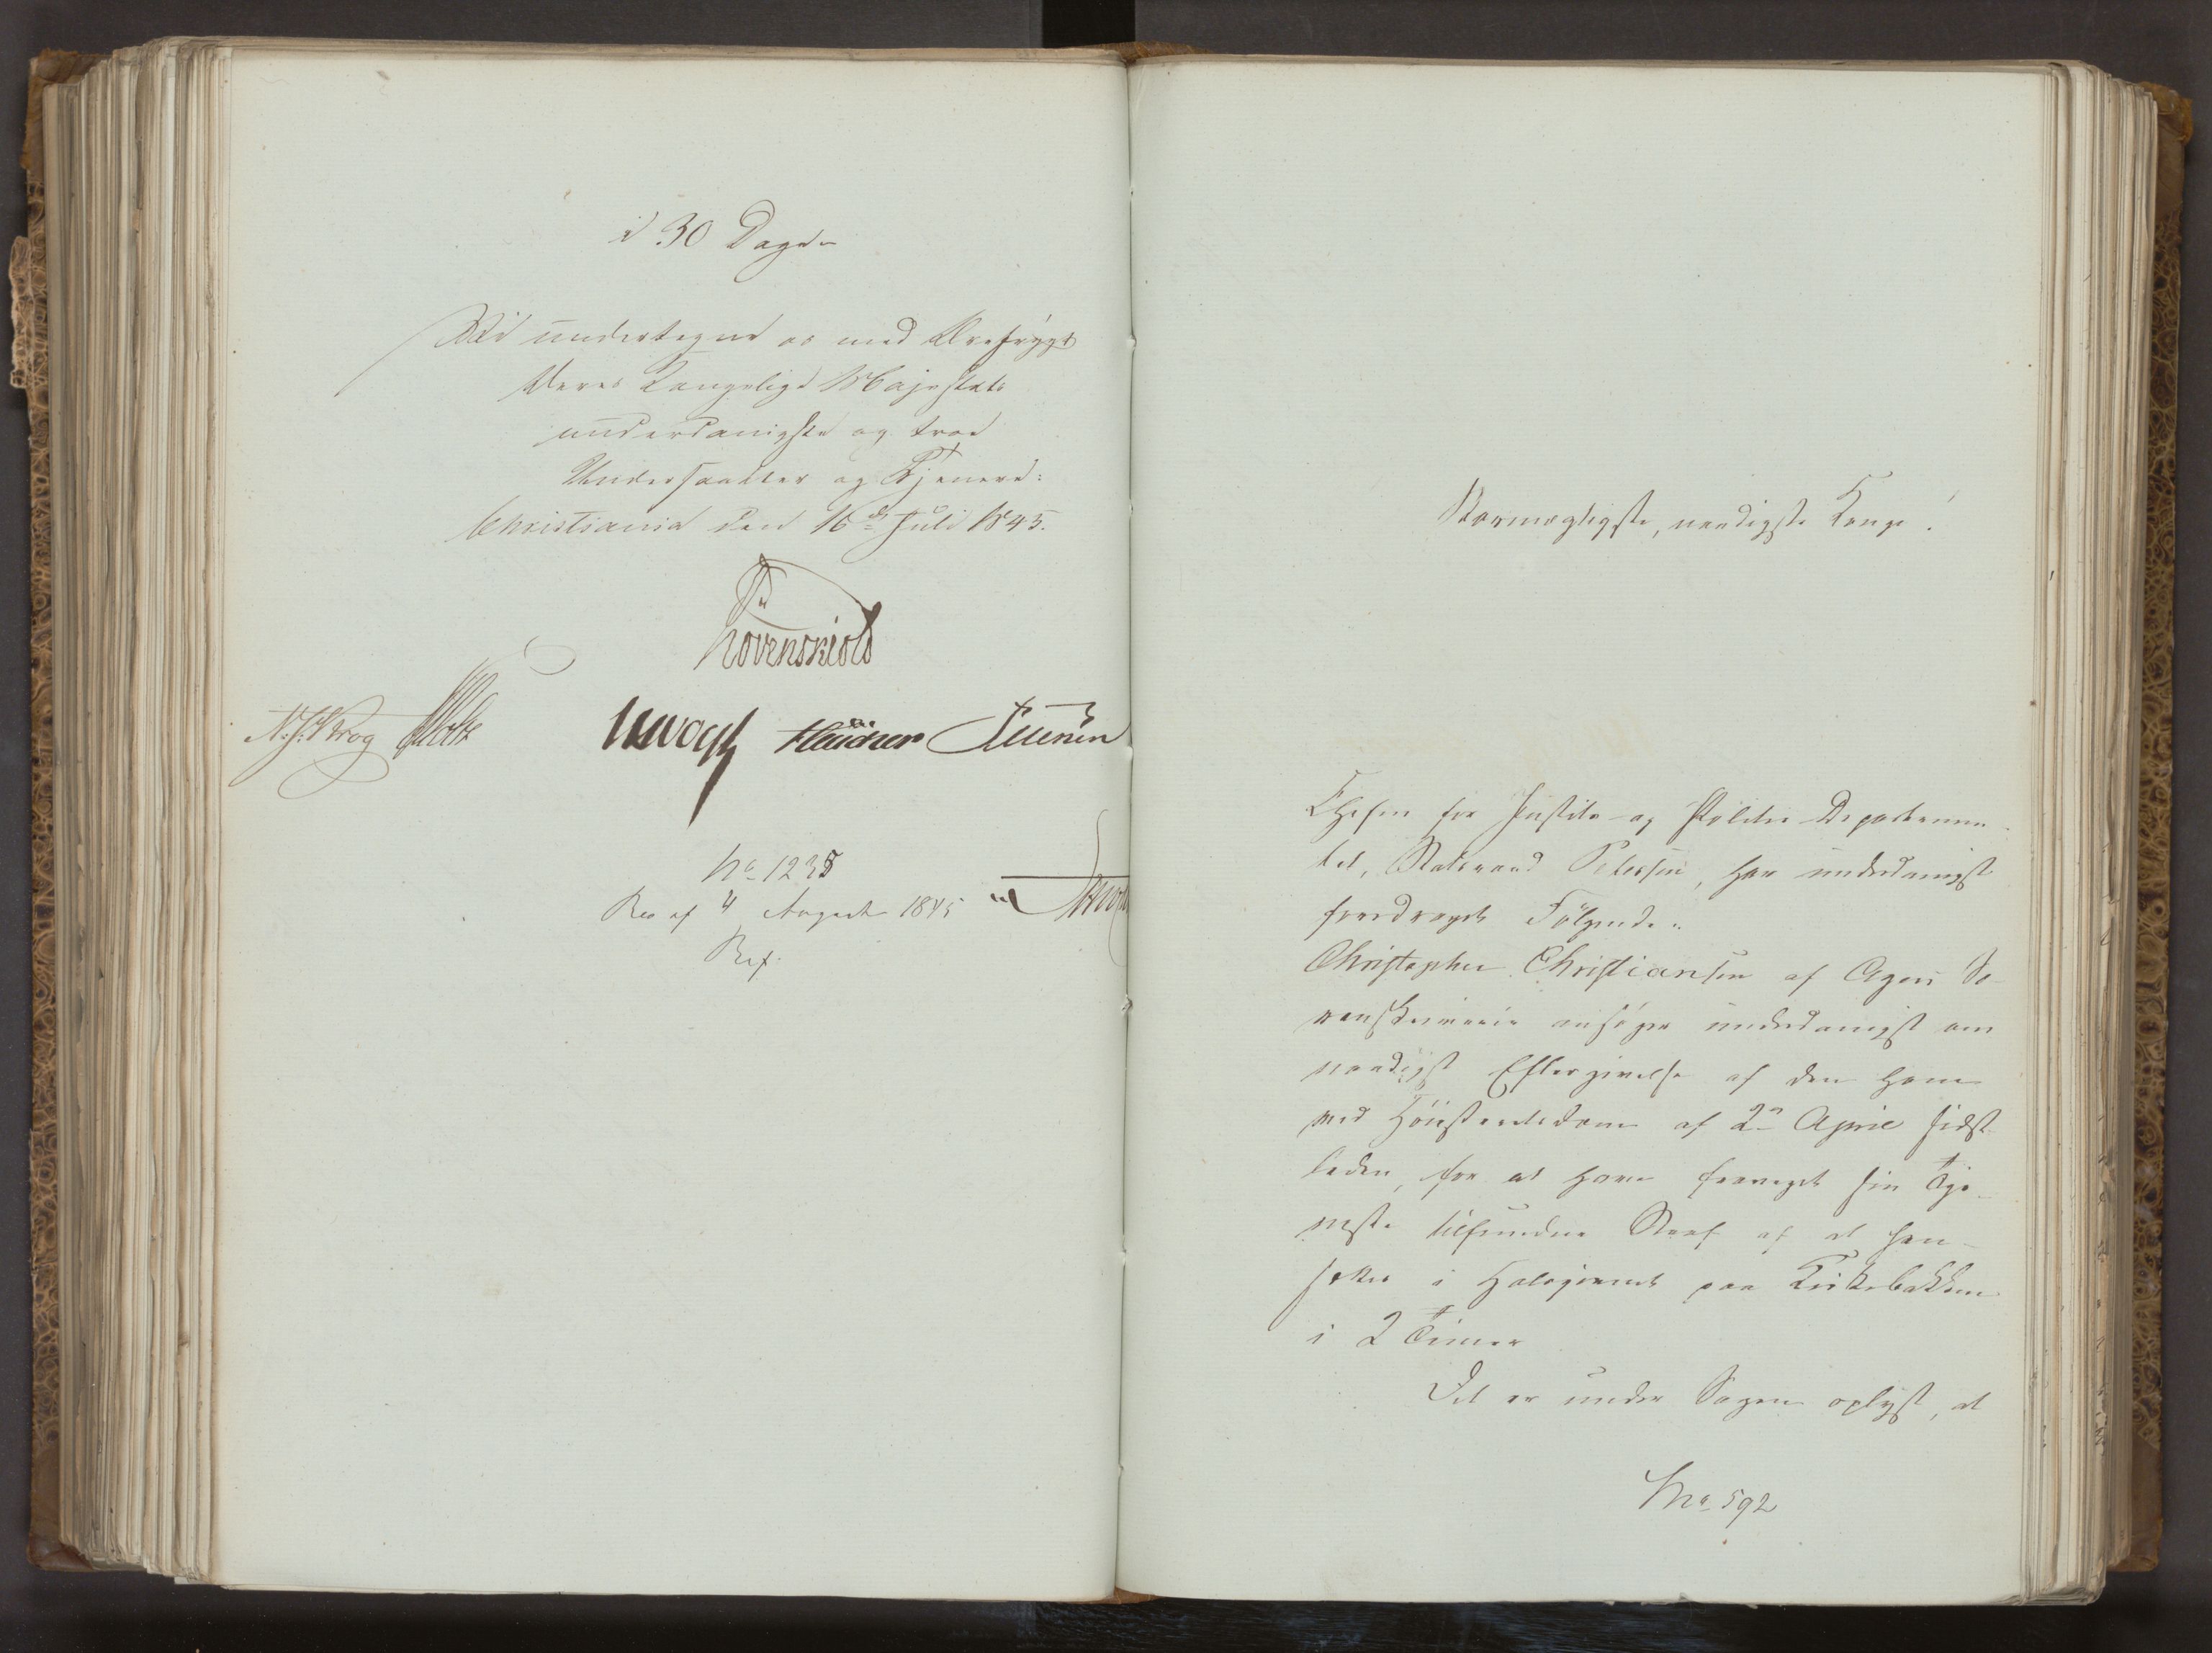 i 30 Dage.
Vi undertegne os med Ærefrygt
Deres Kongelige Majestæts
underdanigste og troe
Undersaatter og Tjenere:
Christiania den 16de Juli 1845.
Løvenskiold
N. J. Krog
Vogt
No 1238
Res af 4 August 1845
Stormægtigste, naadigste Konge!
Chefen for Justits- og Politie-Departemen-
tet, Statsraad Petersen, har underdanigst
foredraget Følgende:
Christopher Christiansen af Agers So-
renskriverie ansøger underdanigst om
naadigst Eftergivelse af den ham
ved Høiesteretsdom af 2n April sidst-
leden, for at have fraveget sin Tje-
neste tilfundne Straf af at hen-
sættes i Halsjernet paa Kirkebakken
i 2 Timer
Det er under Sagen oplyst, at
No 592